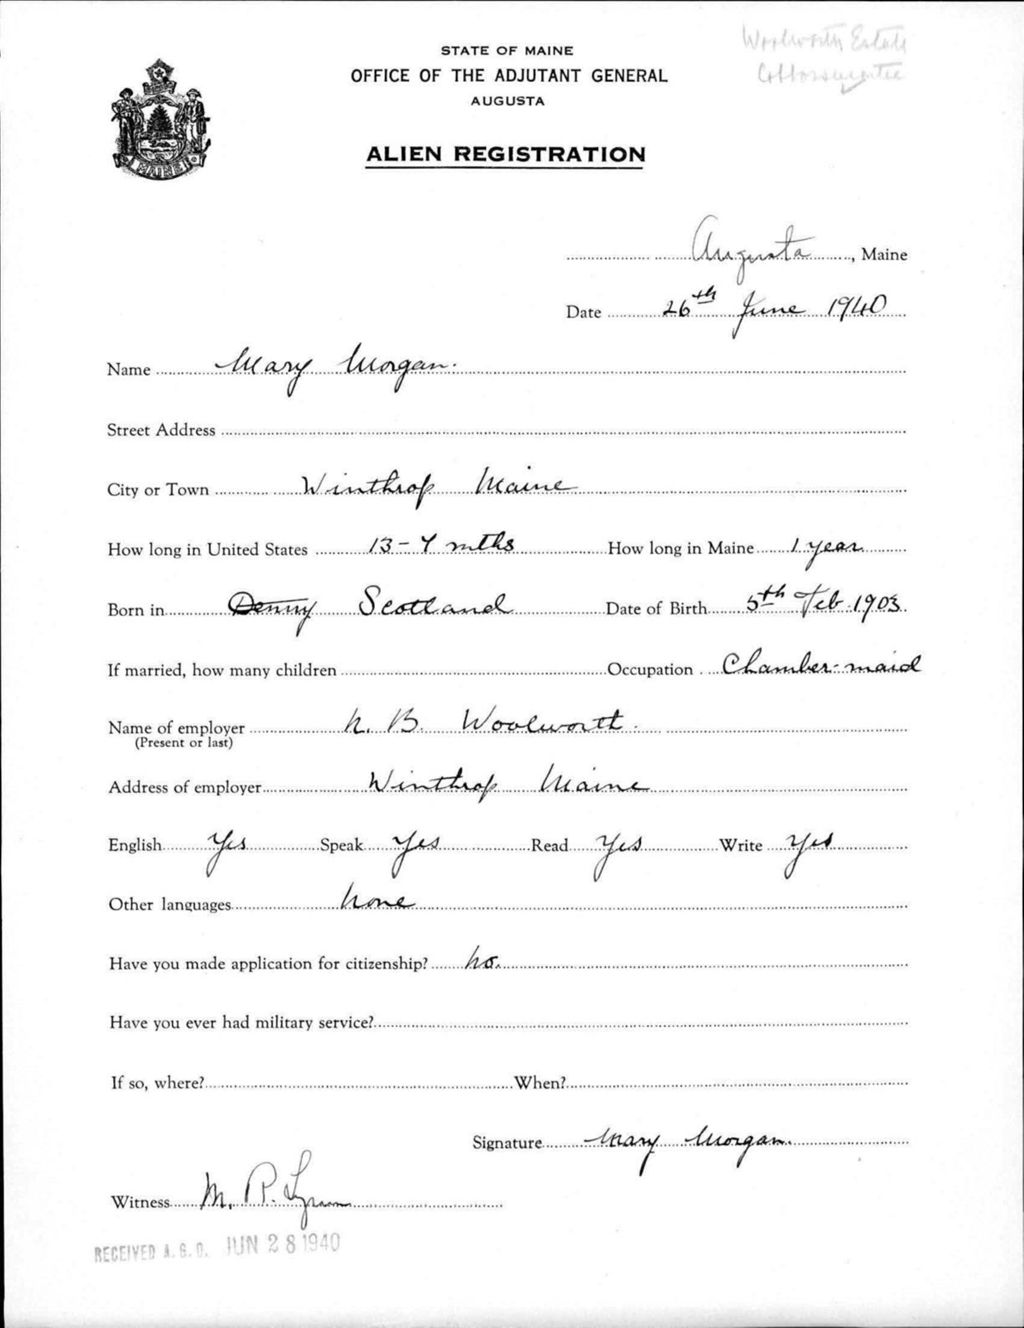 Woolworth Estate
STATE OF MAINE
OFFICE OF THE ADJUTANT GENERAL
AUGUSTA
ALIEN REGISTRATION
MAINE
Augusta, Maine
Date 26th June 1940
Name Mary Morgan.
Street Address
City or Town Winthrop Maine
How long in United States 13 - 7 mths How long in Maine 1 year
Born in Denny Scotland Date of Birth 5th Feb. 1903.
If married, how many children Occupation Chamber-maid
Name of employer N. B. Woolworth.
(Present or last)
Address of employer Winthrop Maine
English Yes Speak Yes Read Yes Write Yes
Other languages None
Have you made application for citizenship? No.
Have you ever had military service?
If so, where? When?
Signature Mary Morgan.
Witness M. P.
RECEIVED A. G. O. JUN 28 1940